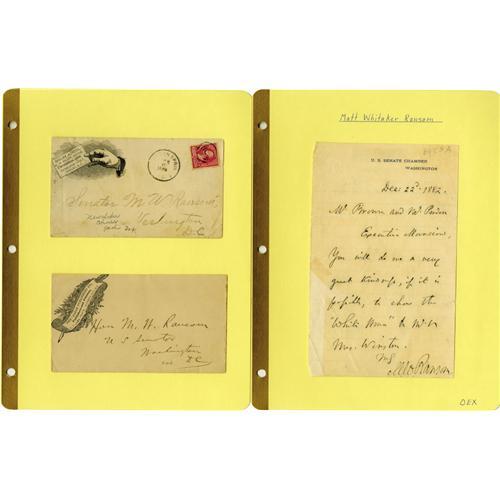 Senator M W Ransom
Washington
D.C
Hon M. W. Ransom
U S Senator
Washington
D.C
Matt Whitaker Ransom
U. S. SENATE CHAMBER
WASHINGTON
Dec 22d 1882.
Mr Brown and Mr
Executive Mansion,
You will do me a very
great Kindness, if it is
possible, to show the
"White House" to Mr &
Mrs. Winston.
M W Ransom
OEX